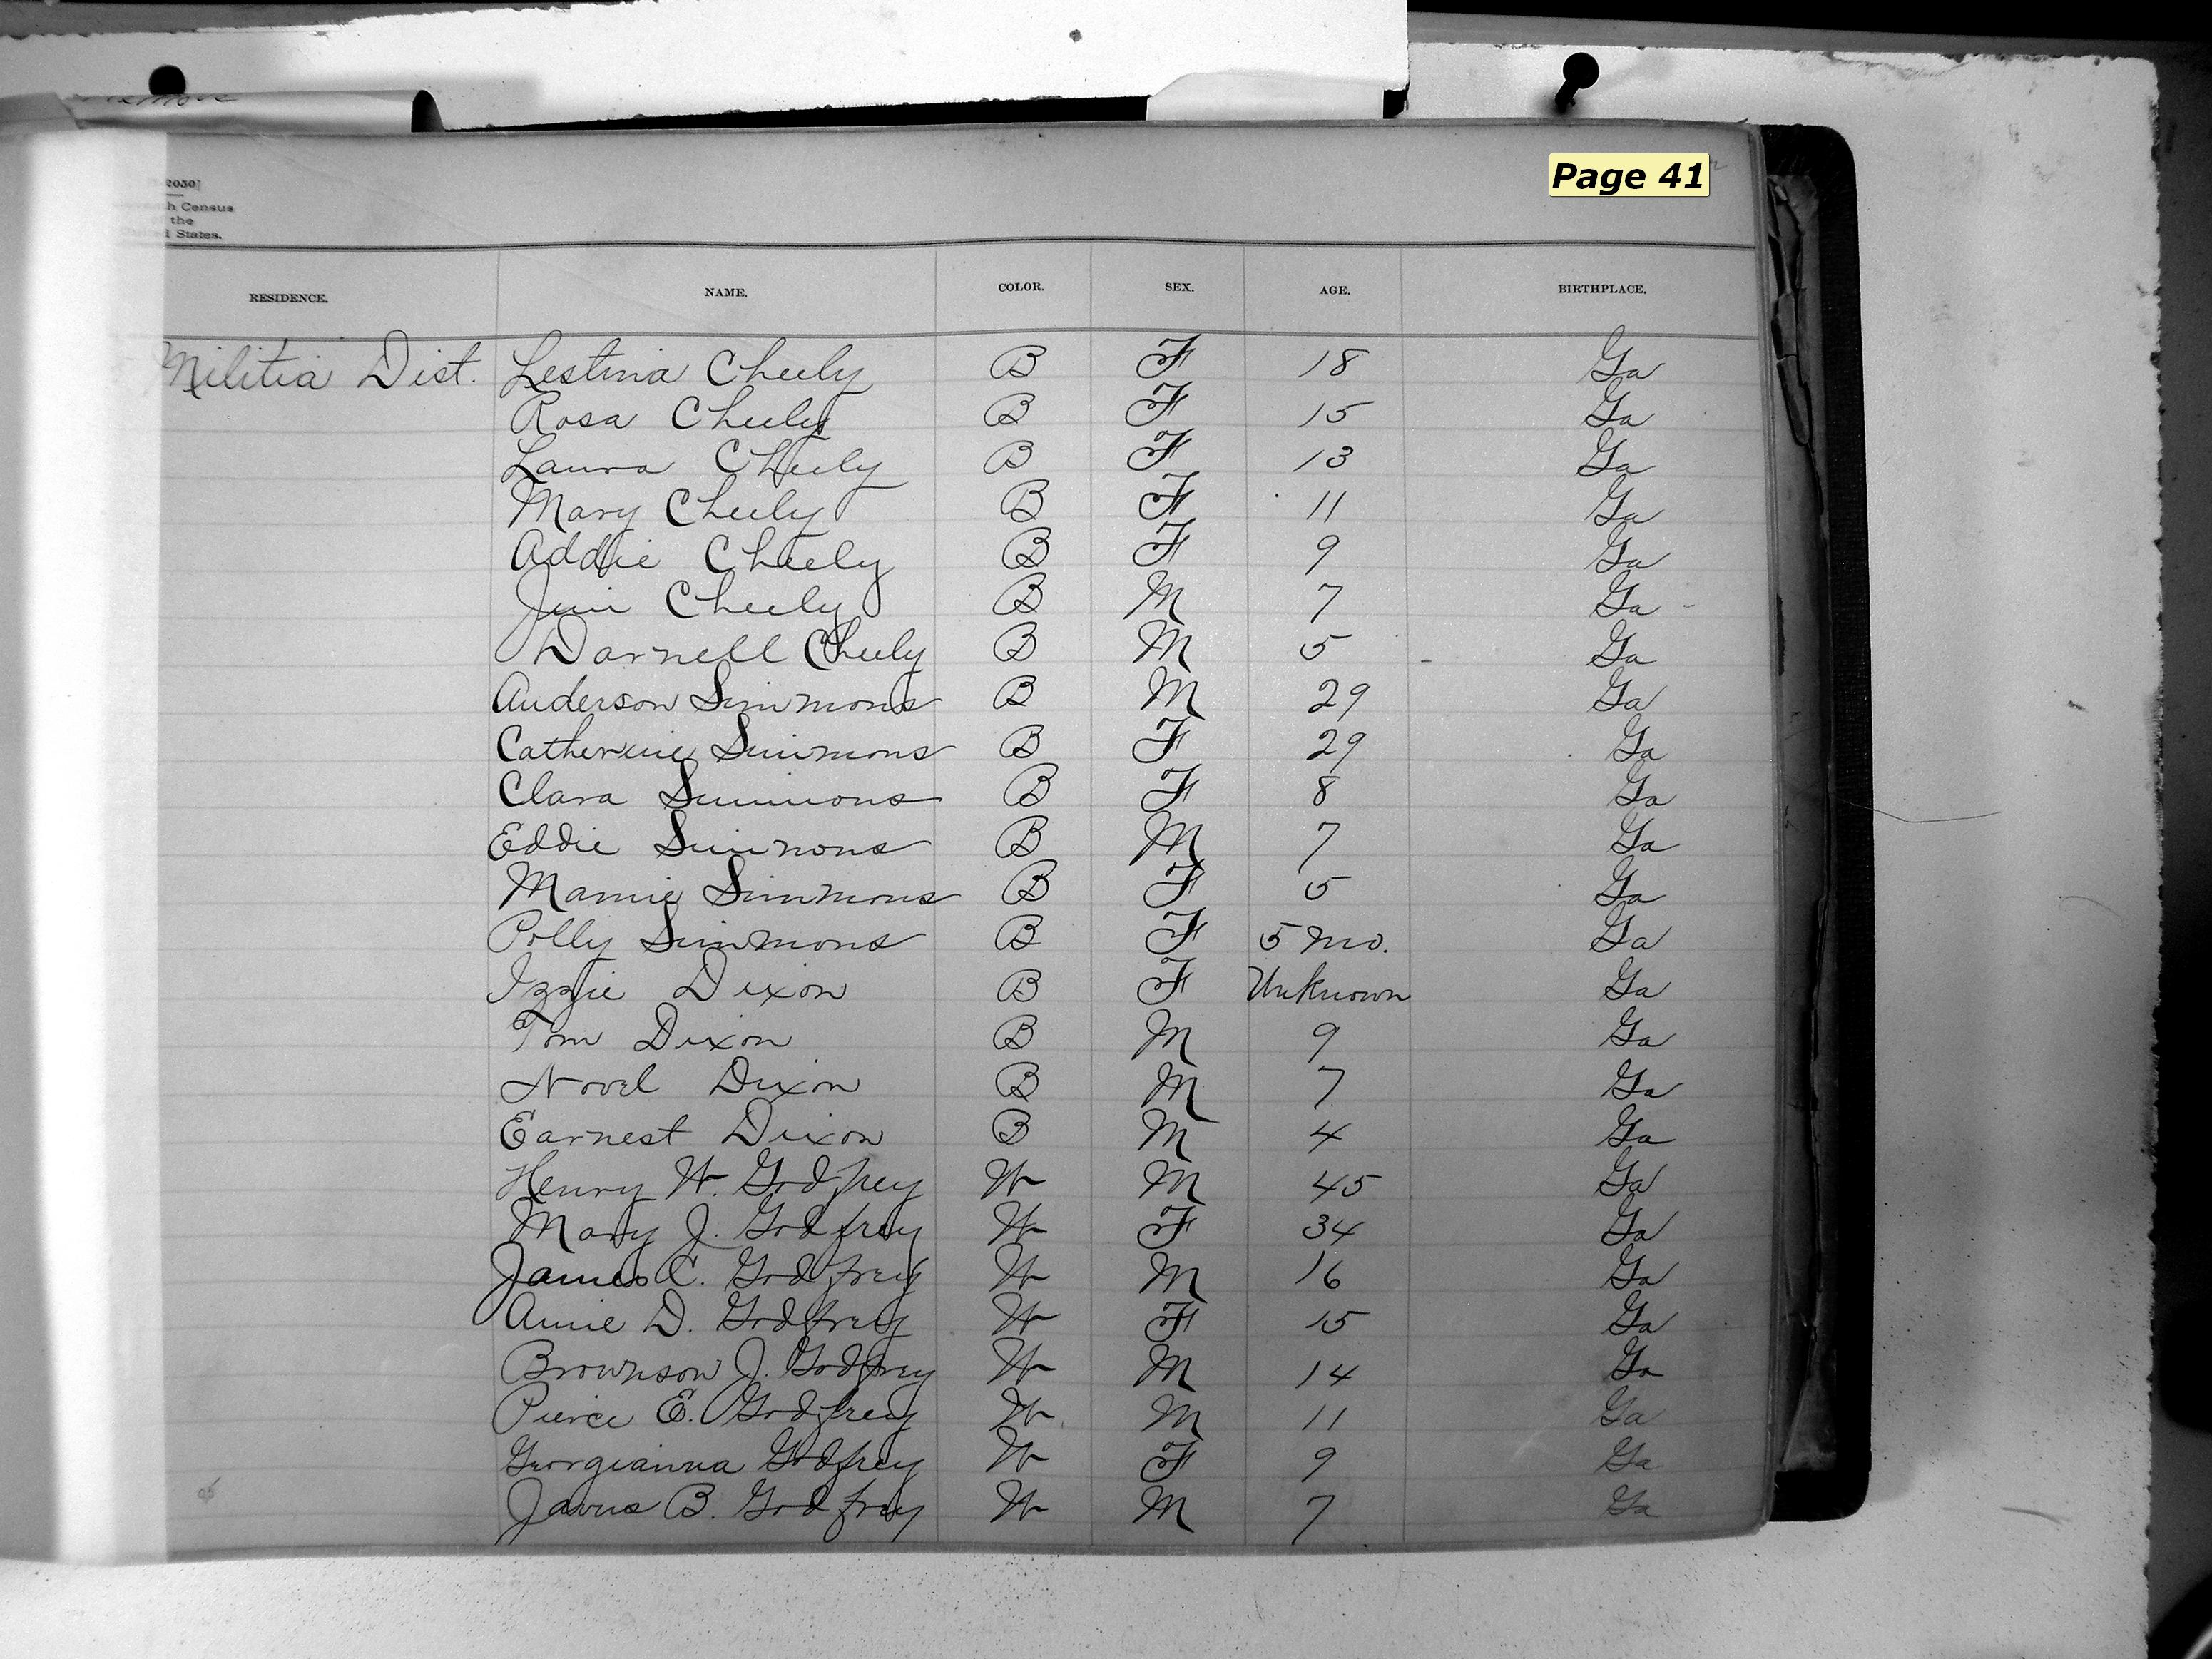 Page 41
2050]
h Census
the
d States.
RESIDENCE. NAME. COLOR. SEX. AGE. BIRTHPLACE.
Militia Dist. Lestina Cheely B F 18 Ga
Rosa Cheely B F 15 Ga
Laura Cheely B F 13 Ga
Mary Cheely B F 11 Ga
Addie Cheely B F 9 Ga
Jim Cheely B M 7 Ga
Darnell Cheely B M 5 Ga
Anderson Simmons B M 29 Ga
Catherine Simmons B F 29 Ga
Clara Simmons B F 8 Ga
Eddie Simmons B M 7 Ga
Mamie Simmons B F 5 Ga
Polly Simmons B F 5 Mo. Ga
Izzie Dixon B F Unknown Ga
Tom Dixon B M 9 Ga
Novel Dixon B M 7 Ga
Earnest Dixon B M 4 Ga
Henry W. Godfrey W M 45 Ga
Mary J. Godfrey W F 34 Ga
James C. Godfrey W M 16 Ga
Annie D. Godfrey W F 15 Ga
Brownson J. Godfrey W M 14 Ga
Pierce E. Godfrey W M 11 Ga
Georgianna Godfrey W F 9 Ga
B. Godfrey W M 7 Ga